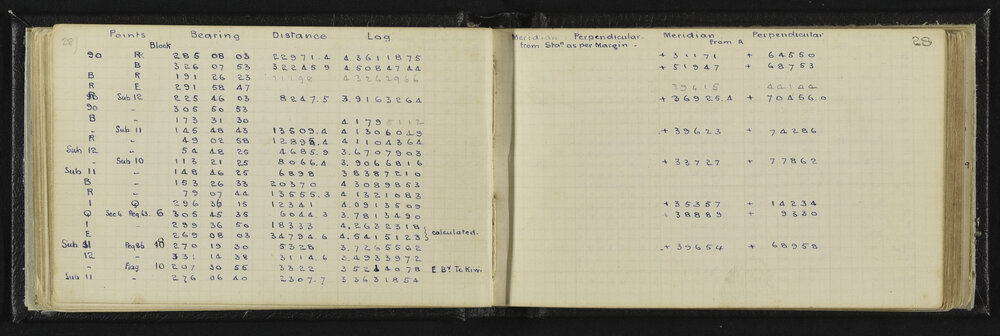 28 Points Bearing Distance Log
Block
90 R 285 08 03 22971.4 4.3611875
B 326 07 53 32245.9 4.5084744
B R 191 26 23 4.3262966
R E 291 58 47
Sub 12 225 46 03 8247.5 3.9163264
90 " 305 50 53
B " 173 31 30 4.1795112
" Sub 11 145 48 43 13509.4 4.1306049
R " 49 02 58 12895.4 4.1104364
Sub 12 " 54 48 25 4685.9 3.6707903
" Sub 10 113 21 25 8066.4 3.9066816
Sub 11 " 148 46 25 6898 3.8387210
B " 153 26 33 20370 4.3089853
R " 79 07 44 13555.3 4.1321083
I Q 296 36 15 12341 4.0913509
Q Sec 6 Peg 63. 6 305 45 35 6044.3 3.7813490
I " 299 36 50 18333 4.2632318
E " 269 08 03 34794.6 4.5415123 calculated.
Sub 11 Peg 86 48 270 19 30 5328 3.7265562
12 " 331 14 38 3114.6 3.4933972
" Flag 10 207 30 55 3322 3.5214078 E By Te Kiwi
Sub 11 " 276 06 40 2307.7 3.3631854
Meridian Perpendicular Meridian Perpendicular 28
from Stas as per Margin. from A
+ 31171 + 64550
+ 51947 + 68753
39415 44144
+ 36925.4 + 70456.0
+ 39623 + 74286
+ 33727 + 77862
+ 35357 + 14234
+ 38889 + 9330
+ 39654 + 68958